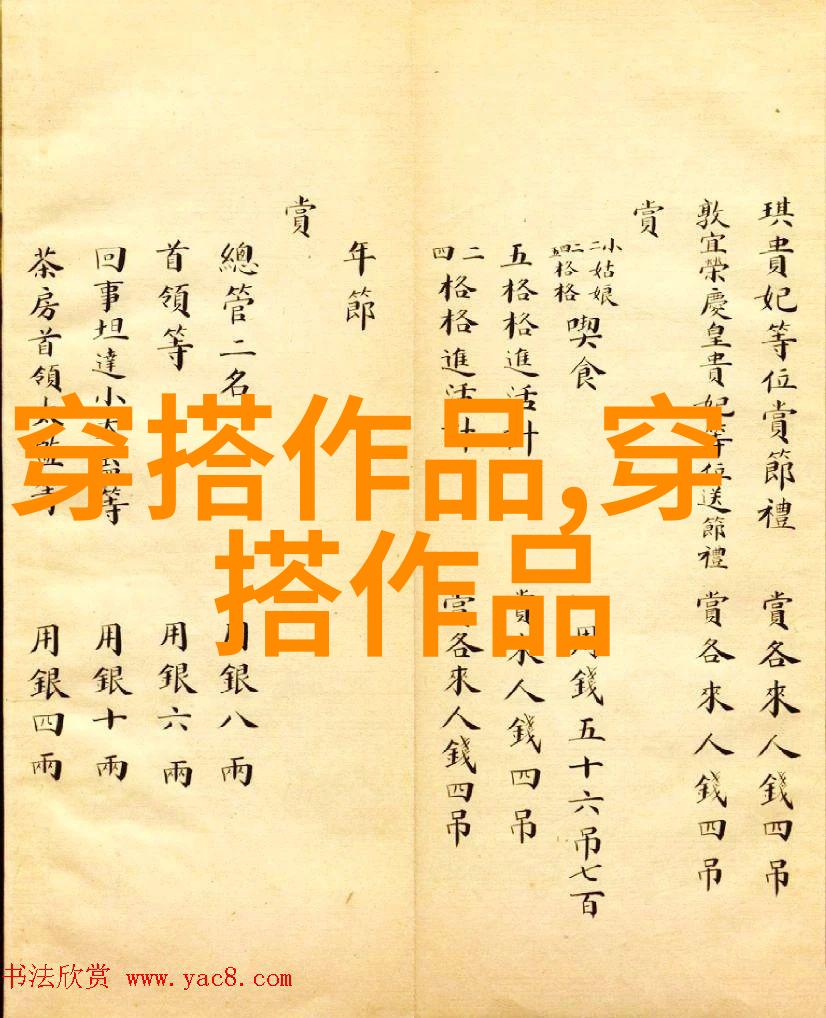 琪貴妃等位賞節禮 賞各來人錢四吊
敦宜榮慶皇貴妃等位送節禮 賞各來人錢四吊
賞
小姑娘
二二格格
四格格
喫食 用錢五十六吊七百
五格格進活計 賞來人錢四吊
二
四格格進活計 賞各來人錢四吊
年節
賞
總管二名 用銀八兩
首領等 用銀六兩
回事坦達小太監等 用銀十兩
茶房首領太監等 用銀四兩
穿搭作品,穿
搭作品
书法欣赏 www.yac8.com